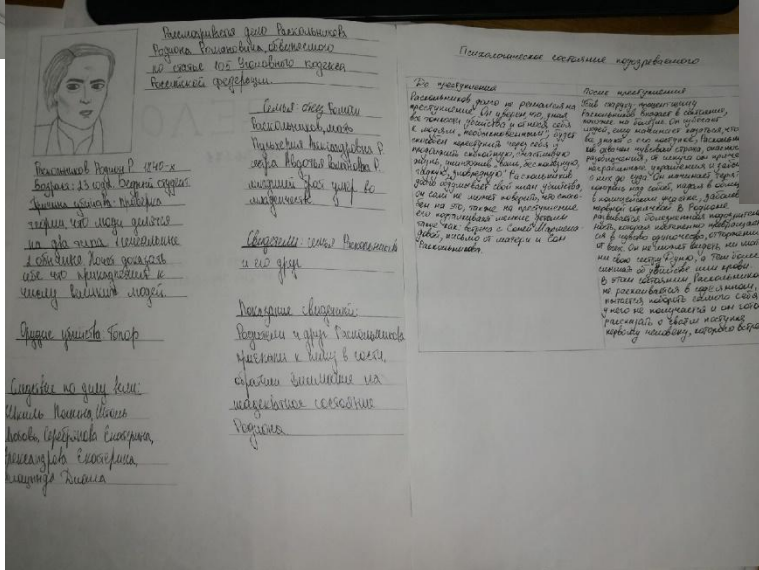 Рассматривается дело Раскольникова
Родиона Романовича, обвиняемого
по статье 105 Уголовного кодекса
Российской федерации.
Раскольников Родион Р. 1840-х
Возраст: 23 года. Бедный студент.
Причина убийства: проверка
теории, что люди делятся
на два типа: гениальные
и обычные. Хотел доказать
себе что принадлежит к
числу великих людей.
Орудие убийства: Топор
Следствие по делу вели:
Серебрякова Екатерина,
Александрова Екатерина,
Диана
Семья: отец Роман
Раскольников, мать
Пульхерия Александровна Р.
сестра Авдотья Романовна Р.
младший брат умер во
младенчестве
Свидетели: семья Раскольникова
и его друг
Показание свидетелей:
Родители и друг Раскольникова
приехали к нему в гости,
обратили внимание на
неадекватное состояние
Родиона
Психологическое состояние подозреваемого
До преступления
Раскольников долго не решается на
преступление. Он уверен, что, зная
все тонкости убийства и относя себя
к людям „необыкновенным", будет
способен переступить через себя и
продолжить спокойную, счастливую
жизнь, уничтожив „вошь, бесполезную,
гадкую, зловредную". Раскольников
долго обдумывает свой план убийства,
он сам не может поверить, что спосо-
бен на это, также на преступление
его подталкивают мелкие детали
такие как: встреча с Соней Мармела-
довой, письмо от матери и сон
Раскольникова.
После преступления
Убив старуху-процентщицу
Раскольников впадает в состояние,
похожее на болезнь. Он избегает
людей, ему начинает казаться, что
все знают о его поступке, Раскольни-
ков
нервной горячкой. В Родионе
развивается болезненная подозритель-
ность, которая постепенно превращает-
ся в чувство одиночества, отчуждения
от всех. Он не может видеть ни мать
ни свою сестру Дуню, а тем более
слышать об убийстве или крови.
В этом состоянии Раскольников
не раскаивается в содеянном,
пытается побороть самого себя
у него не получается и он готов
рассказать о своём поступке
первому человеку, которого встретит